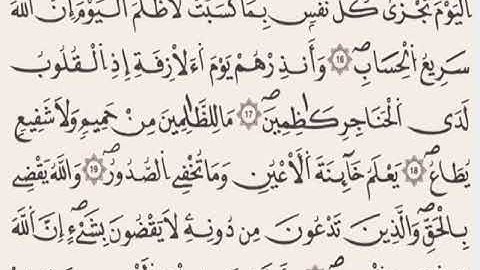 اَلْيَوْمَ تُجْزَىٰ كُلُّ نَفْسٍۢ بِمَا كَسَبَتْ لَا ظُلْمَ اَ۬لْيَوْمَ إِنَّ اَ۬للَّهَ
سَرِيعُ اُ۬لْحِسَابِۖ 16 وَأَنذِرْهُمْ يَوْمَ اَ۬لَازِفَةِ إِذِ اِ۬لْقُلُوبُ
لَدَى اَ۬لْحَنَاجِرِ كَٰظِمِينَۖ 17 مَا لِلظَّٰلِمِينَ مِنْ حَمِيمٍ وَلَا شَفِيعٍ
يُطَاعُۖ 18 يَعْلَمُ خَآئِنَةَ اَ۬لَاعْيُنِ وَمَا تُخْفِے اِ۬لصُّدُورُۖ 19 وَاللَّهُ يَقْضِے
بِالْحَقِّۖ وَالَّذِينَ تَدْعُونَ مِن دُونِهِۦ لَا يَقْضُونَ بِشَےْءٍۖ اِنَّ اَ۬للَّهَ